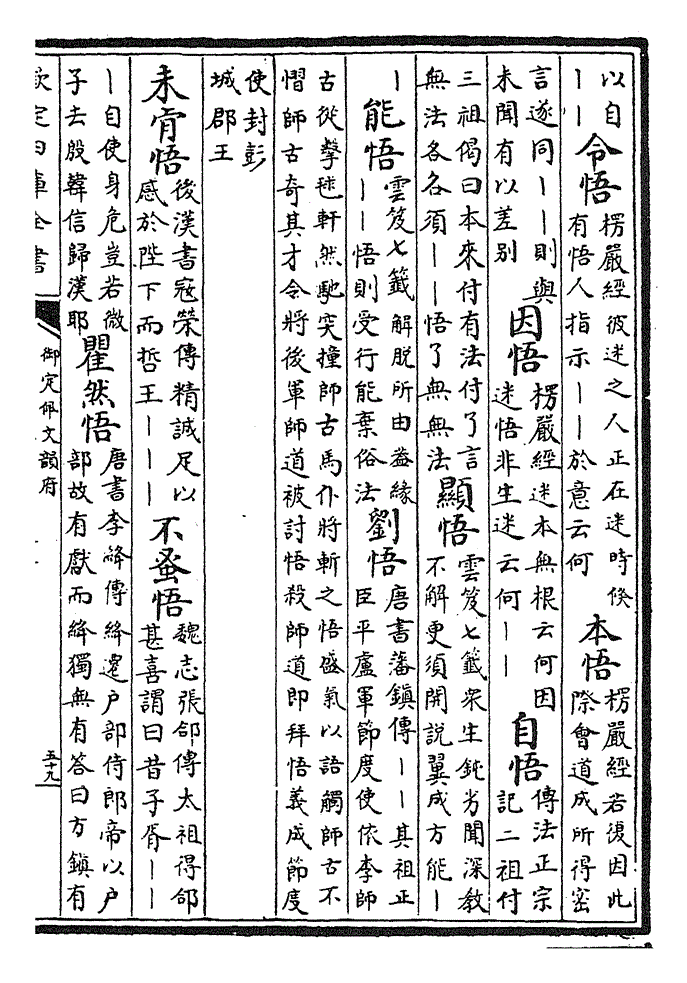 以自
｜｜
令悟
楞嚴經彼迷之人正在迷時倏
有悟人指示｜｜於意云何
本悟
楞嚴經若復因此
際會道成所得密
言遂同｜｜則與
未聞有以差别
因悟
楞嚴經迷本無根云何因
迷悟非生迷云何｜｜
自悟
傳法正宗
記二祖付
三祖偈曰本來付有法付了言
無法各各須｜｜悟了無無法
顯悟
雲笈七籤衆生鈍劣聞深教
不解更須開說翼成方能｜
｜
能悟
雲笈七籤解脱所由益緣
｜｜悟則受行能棄俗法
劉悟
唐書藩鎮傳｜｜其祖正
臣平盧軍節度使依李師
古從擊毬軒然馳突撞師古馬仆將斬之悟盛氣以語觸師古不
慴師古奇其才令將後軍師道被討悟殺師道即拜悟義成節度
使封彭
城郡王
未肯悟
後漢書寇榮傳精誠足以
感於陛下而哲王｜｜｜
不蚤悟
魏志張郃傳太祖得郃
甚喜謂曰昔子胥｜｜
｜自使身危豈若微
子去殷韓信歸漢耶
瞿然悟
唐書李絳傳絳遷户部侍郎帝以户
部故有獻而絳獨無有答曰方鎮有
欽定四庫全書
御定佩文韻府
五十九